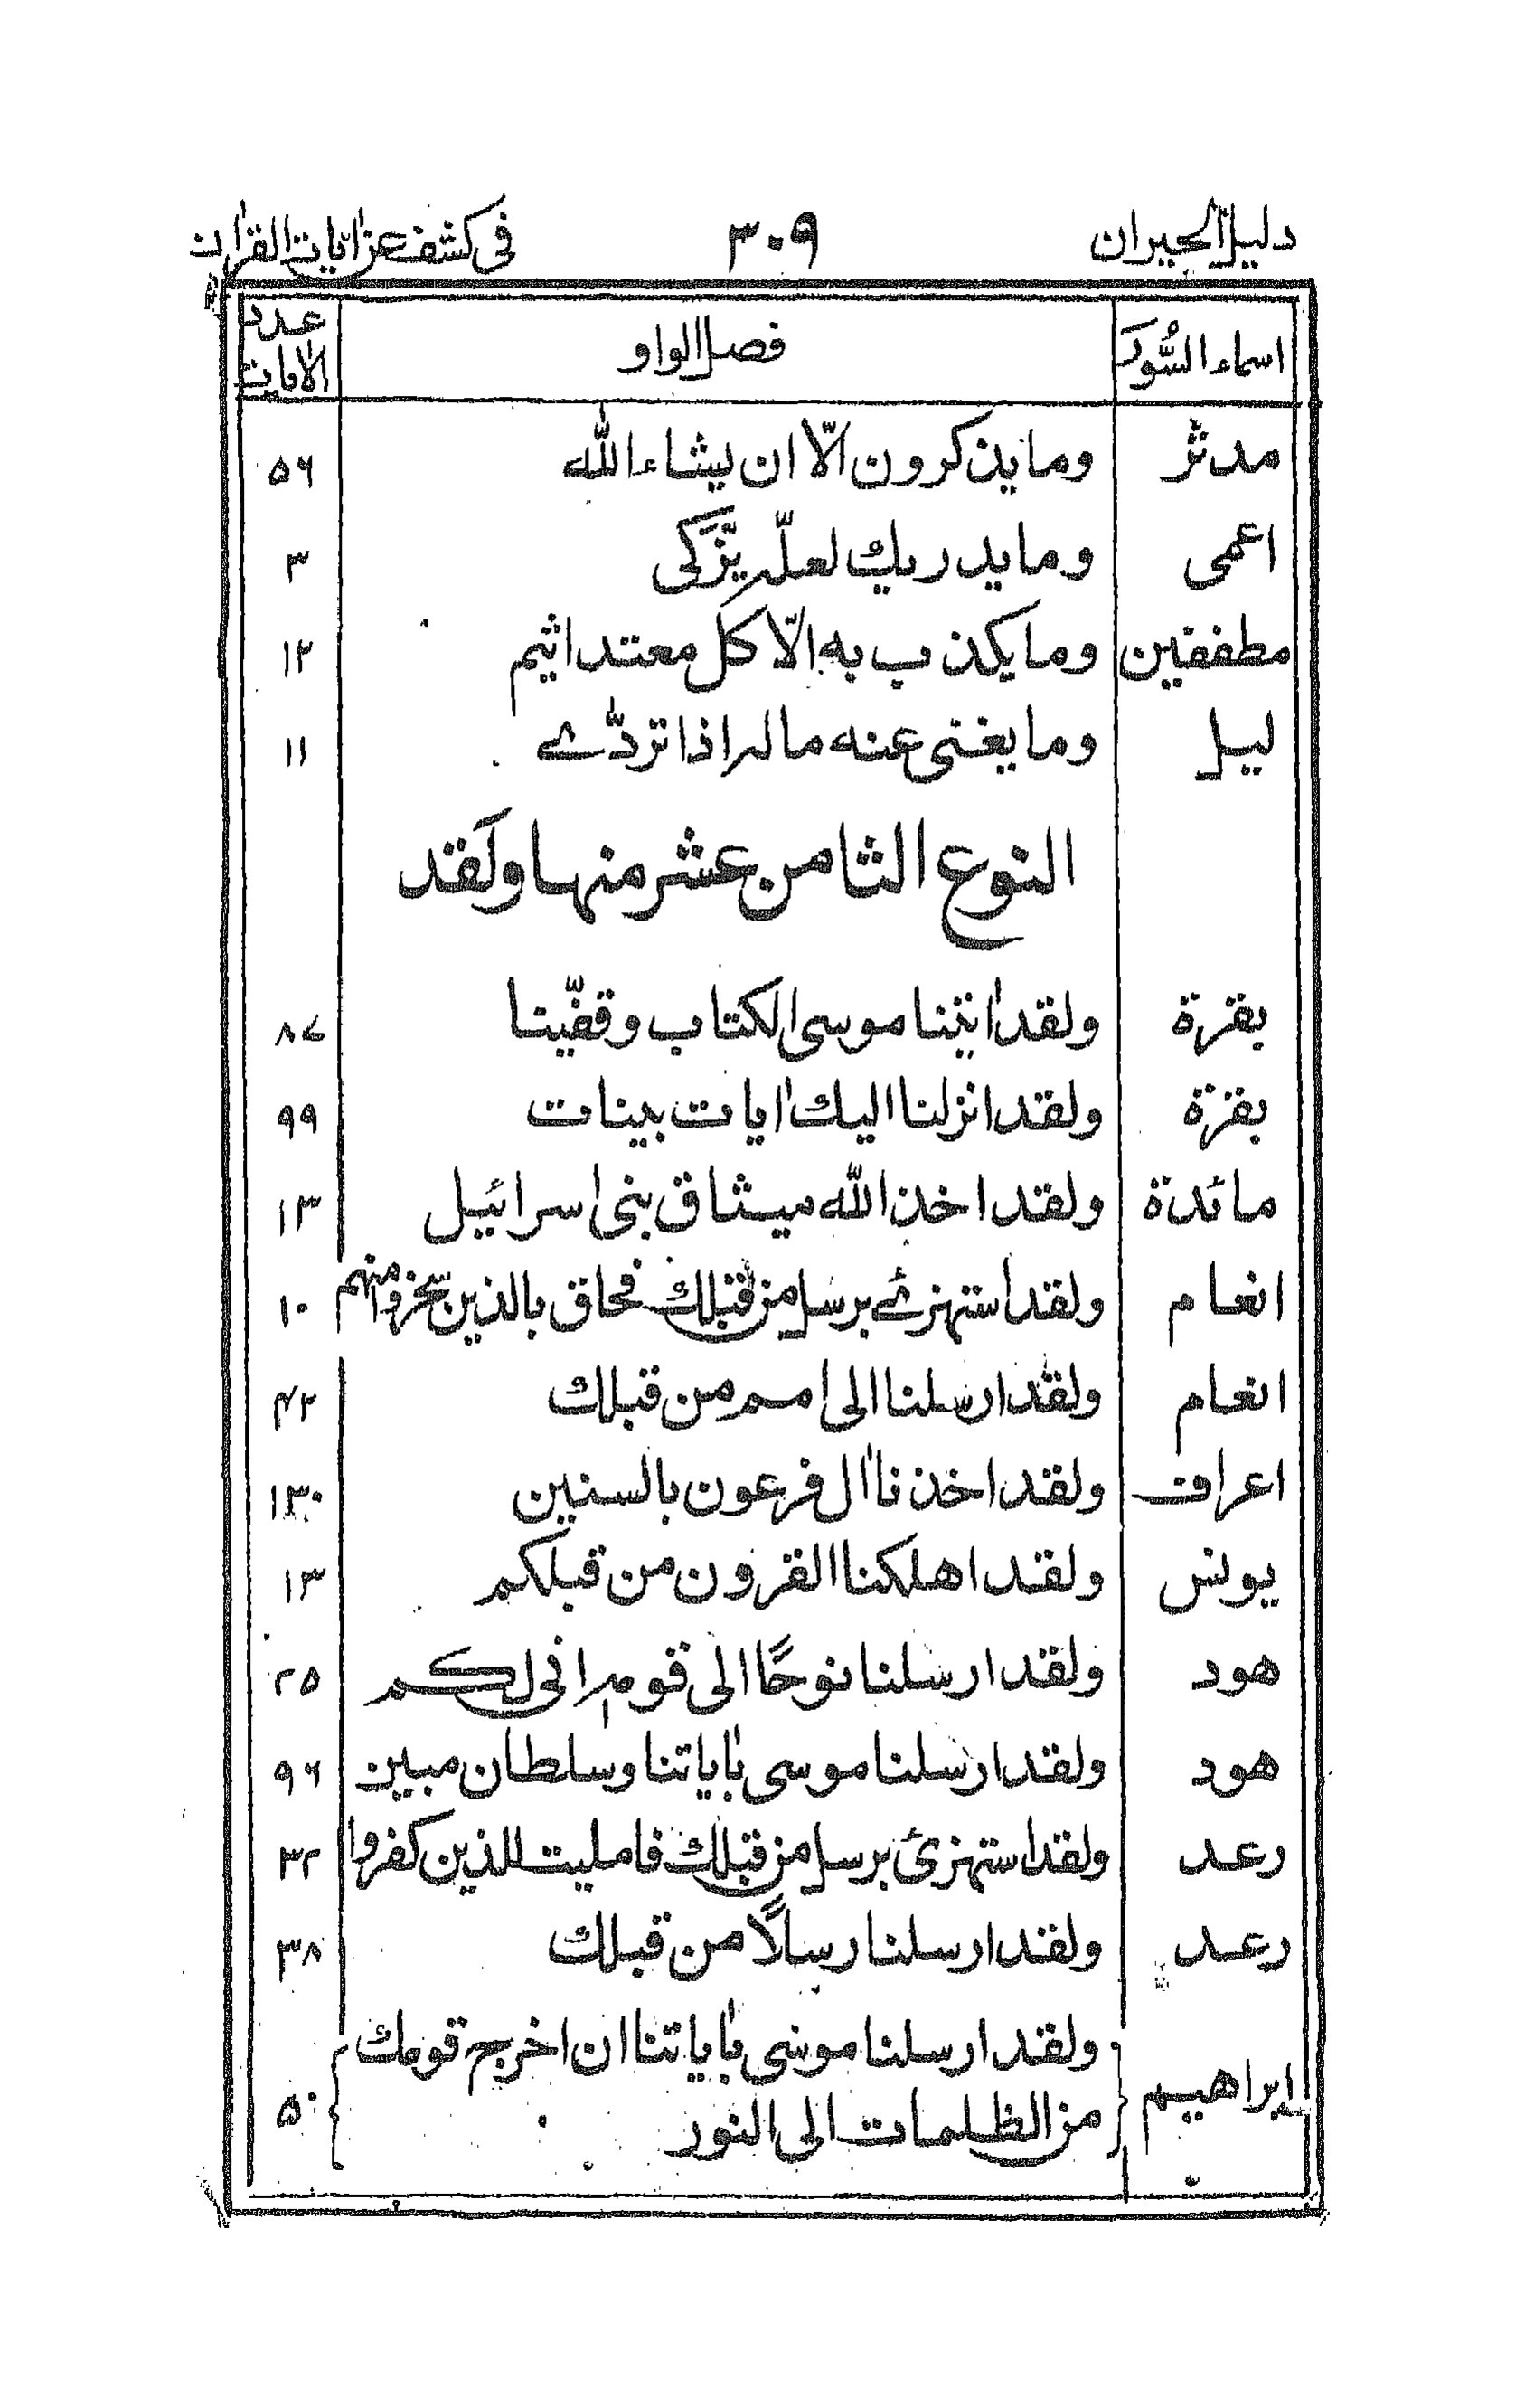 دليل الحيران ٣٠٩ فى كشف عن آيات القرآن
اسماء السُّور فصل الواو عدد الآيات
مدثر وما يذكرون الّا ان يشاء الله ٥٦
اعمى وما يدريك لعلّه يزّكى ٣
مطففين وما يكذب به الّا كل معتد اثيم ١٢
ليل وما يغنى عنه ماله اذا تردّے ١١
النوع الثامن عشر منها ولَقد
بقرة ولقد اٰتينا موسى الكتاب وقفّينا ٨٧
بقرة ولقد انزلنا اليك اٰيات بينات ٩٩
مائدة ولقد اخذ الله ميثاق بنى اسرائيل ١٣
انعام ولقد استهزئے برسل من قبلك فحاق بالذين سخروا منهم ١٠
انعام ولقد ارسلنا الى امم من قبلك ٤٢
اعراف ولقد اخذنا اٰل فرعون بالسنين ١٣٠
يونس ولقد اهلكنا القرون من قبلكم ١٣
هود ولقد ارسلنا نوحًا الى قومه انى لكم ٢٥
هود ولقد ارسلنا موسى بٰاياتنا وسلطان مبين ٩٦
رعد ولقد استهزئ برسل من قبلك فامليت للذين كفروا ٣٢
رعد ولقد ارسلنا رسلًا من قبلك ٣٨
ابراهيم ولقد ارسلنا موسى بٰاياتنا ان اخرج قومك ٥٠
من الظلمات الى النور